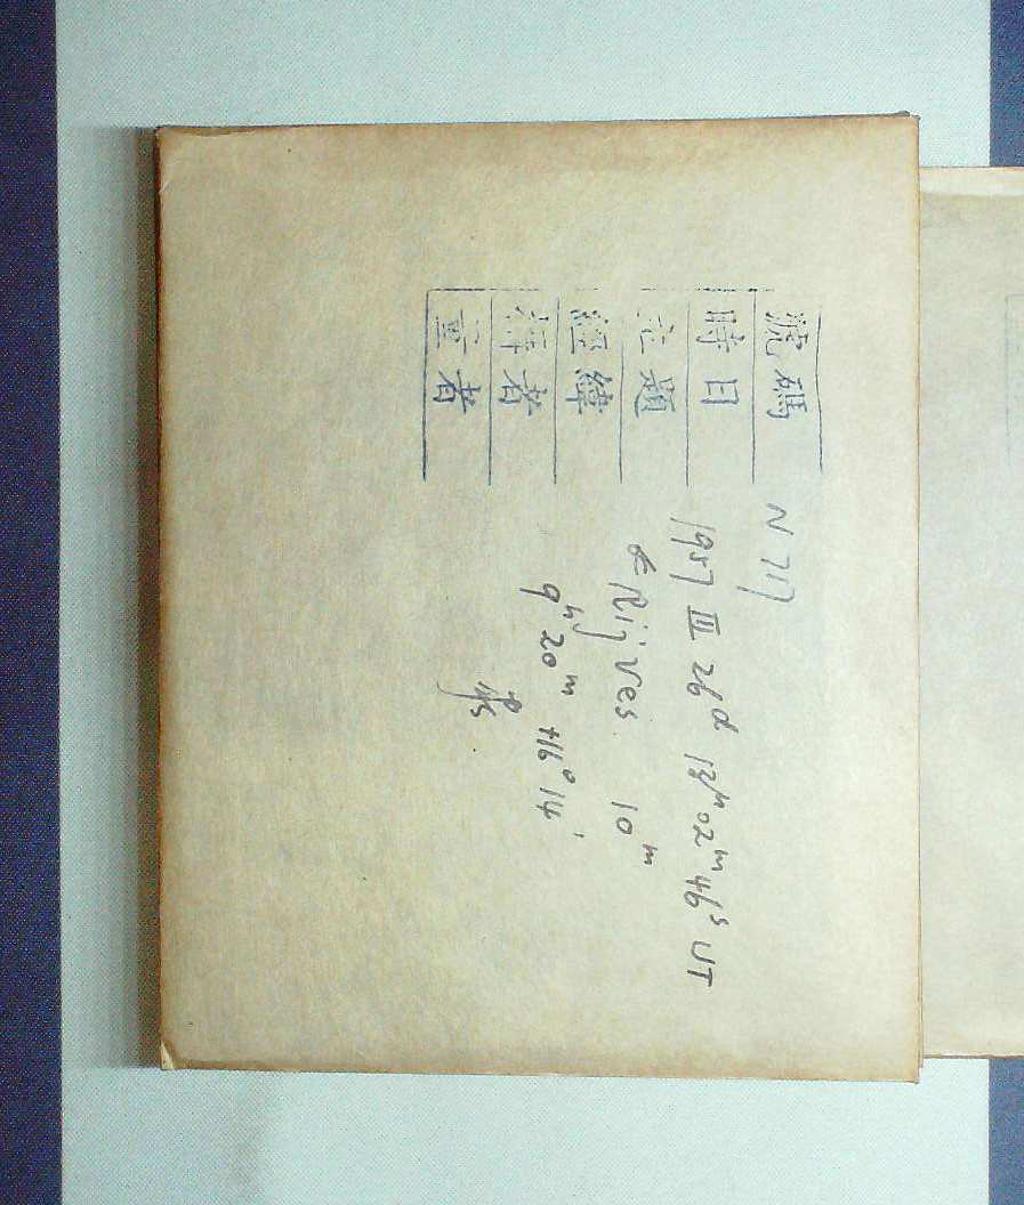 號碼 N 717
時日 1957 III 26d 13h 02m 46s UT
定題 Rijves 10m
經緯 9h 20m +16° 14'
譯者
量者